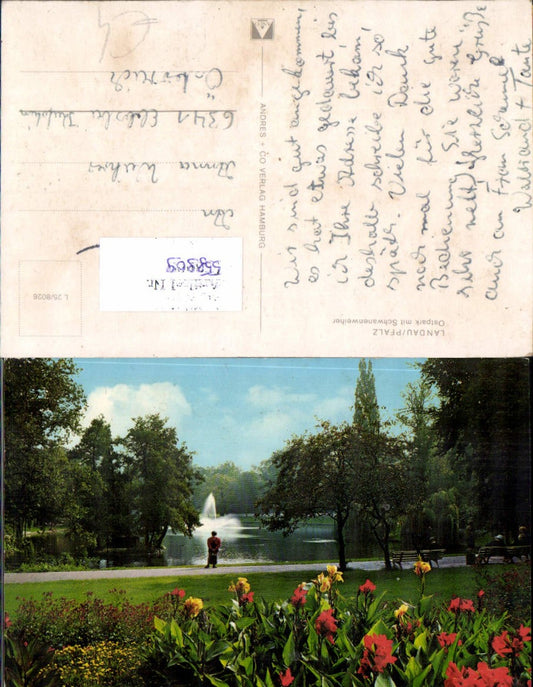 LANDAU/PFALZ
Ostpark mit Schwanenweiher
Wir sind gut angekommen,
es hat etwas gedauert bis
ich Ihre Adresse bekam,
deshalb schreibe ich so
spät. Vielen Dank
noch mal für die gute
Bedienung. Sie waren
sehr nett. Herzliche Grüße
auch an Frau
Waltraud + Tante
ANDRES + CO VERLAG HAMBURG
An
Anna
6341
Österreich
Artikel Nr.
558909
L 25/8026